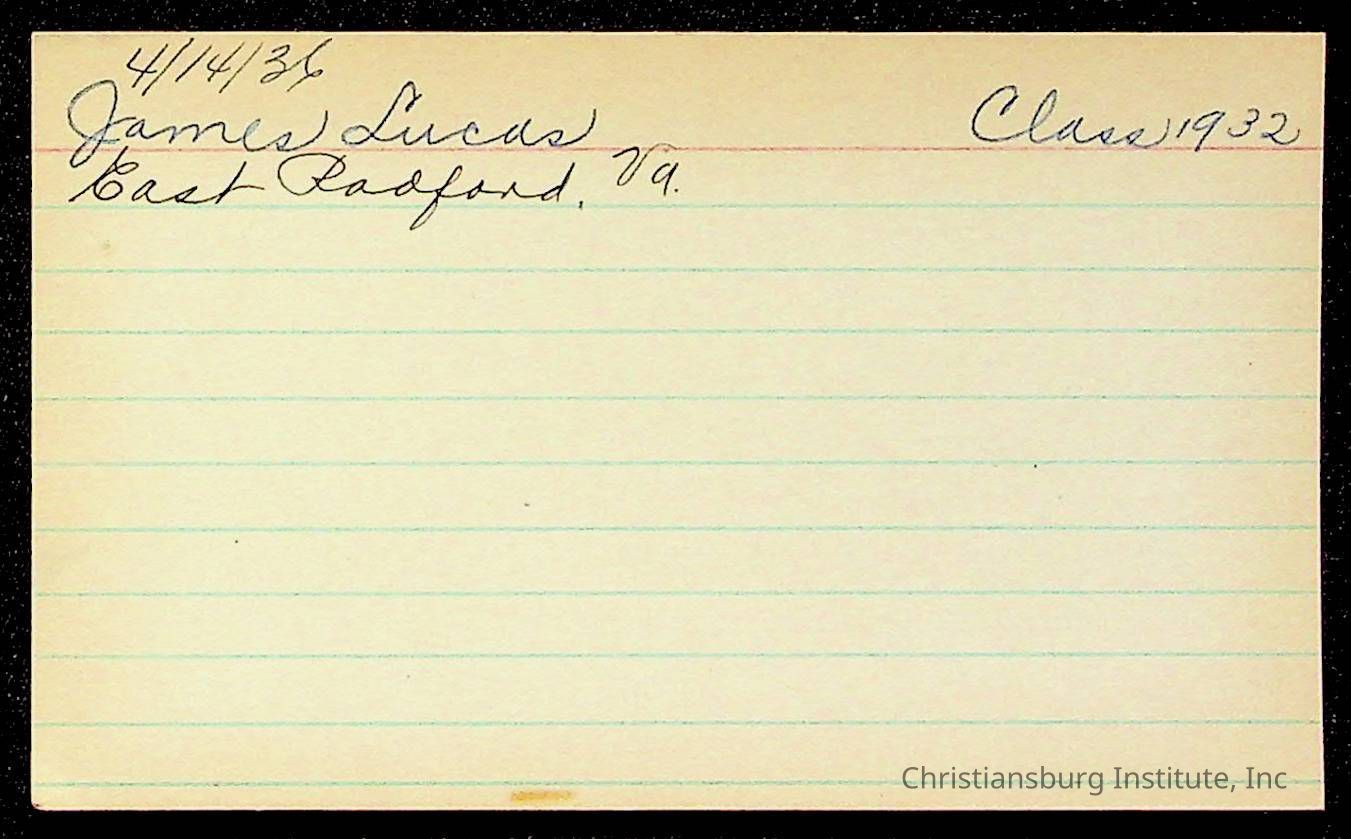 4/14/36
James Lucas Class 1932
East Radford, Va.
Christiansburg Institute, Inc